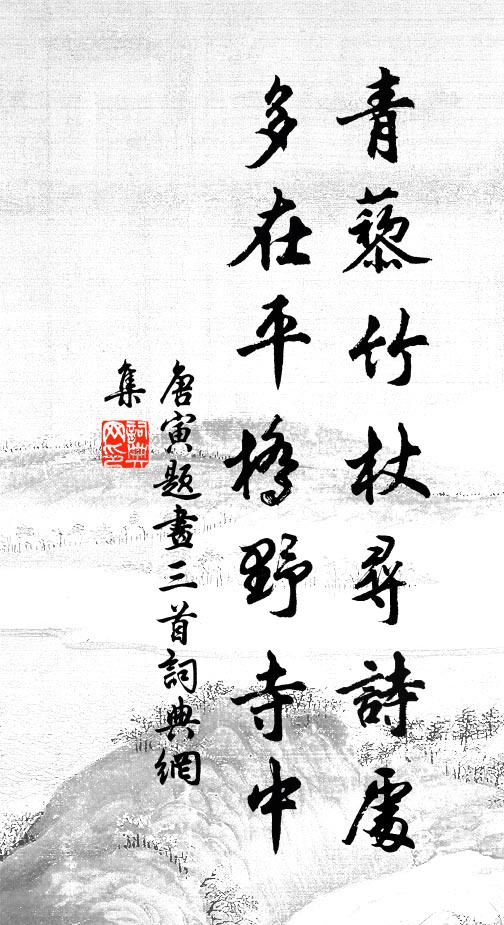 青藜竹杖尋詩處
多在平橋野寺中
唐寅題畫三首詞典網
集